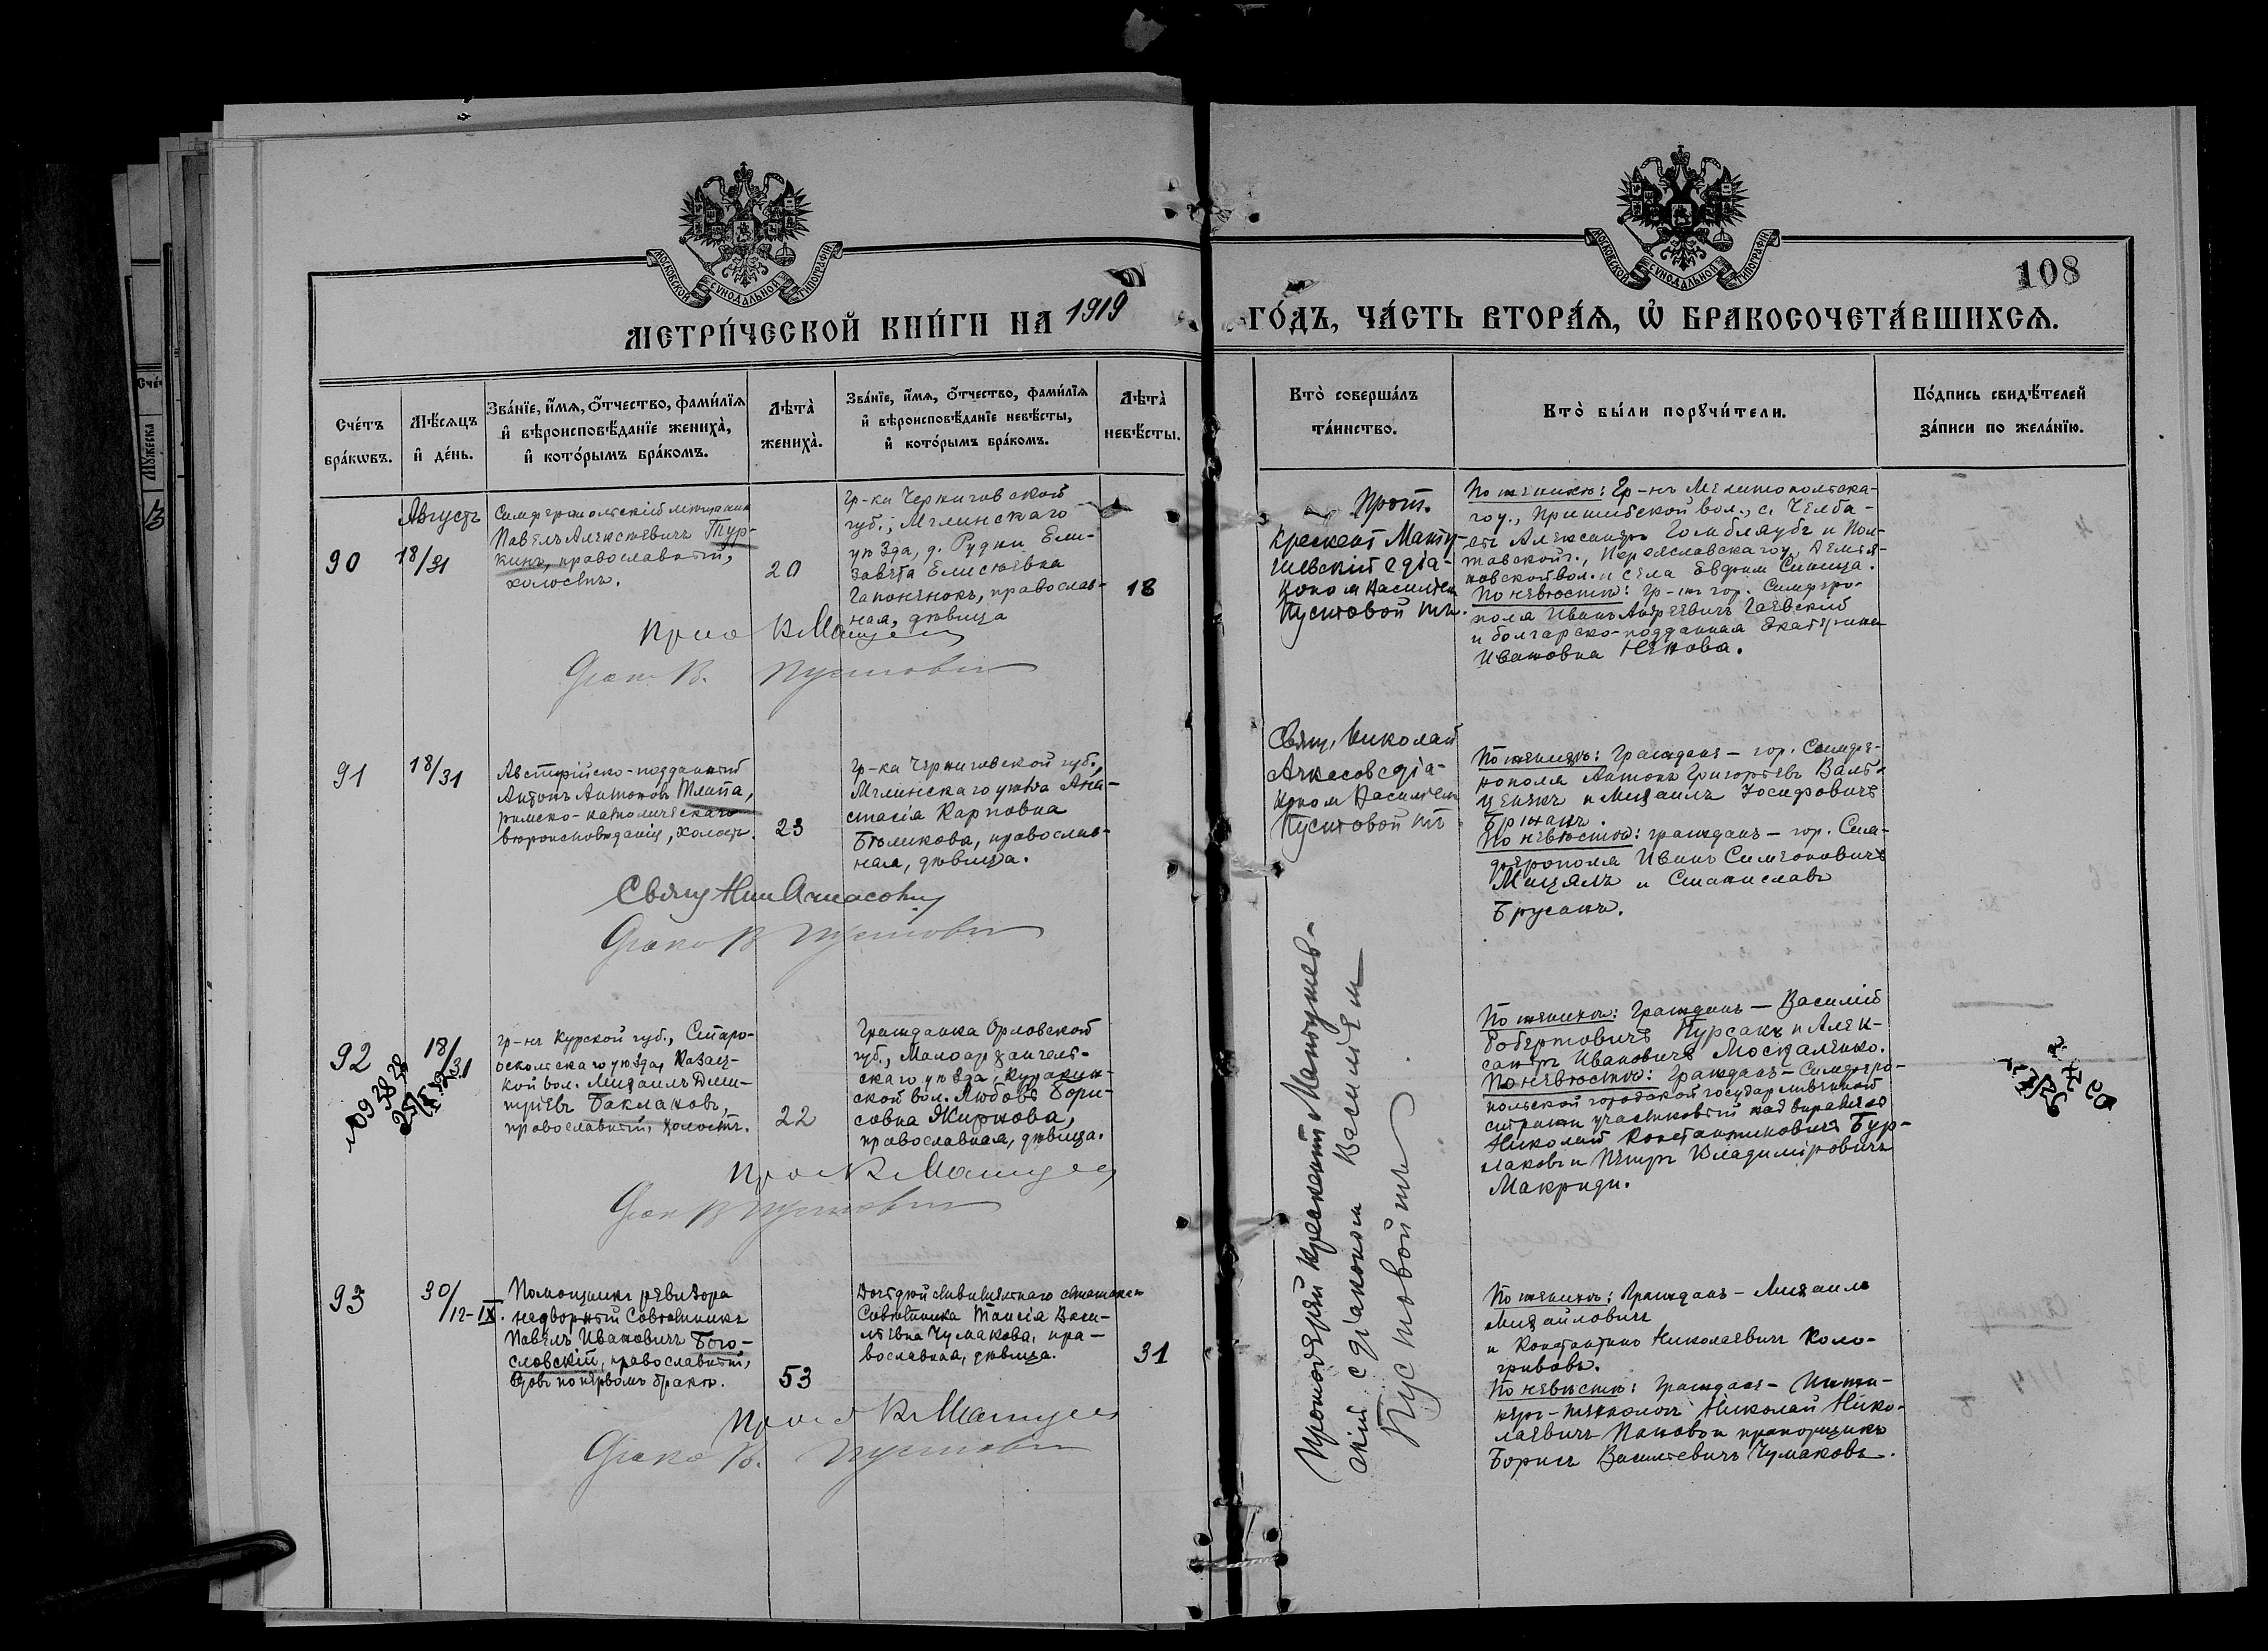 108
МЕТРИ́ЧЕСКОЙ КНИ́ГИ НА 1919
ГО́ДЪ, ЧА́СТЬ ВТОРА́Я, Ѡ БРАКОСОЧЕТА́ВШИХСЯ.
МОСКОВСКОЙ СѴНОДАЛЬНОЙ ТИПОГРАФІИ
МОСКОВСКОЙ СѴНОДАЛЬНОЙ ТИПОГРАФІИ
Сче́тъ
бра́кѡвъ.
Мѣ́сяцъ
и҆ де́нь.
Зва́нїе, и҆́мя, ѻ҆́тчество, фами́лїя
и҆ вѣроисповѣ́данїе жениха̀,
и҆ кото́рымъ бра́комъ.
Лѣта̀
жениха̀.
Зва́нїе, и҆́мя, ѻ҆́тчество, фами́лїя
и҆ вѣроисповѣ́данїе невѣ́сты,
и҆ кото́рымъ бра́комъ.
Лѣта̀
невѣ́сты.
Кто̀ соверша́лъ
та́инство.
Кто̀ бы́ли порꙋчи́тели.
По́дпись свидѣ́телей
за́писи по жела́нїю.
90
Августъ
18/31
Симферопольскій мѣщанинъ
Павелъ Алексѣевичъ Тур-
кинъ, православный,
холостъ.
20
Гр-ка Черниговской
губ., Мглинскаго
уѣзда, д. Рудни Ели-
завета Елисѣевна
Гапоненокъ, православ-
ная, дѣвица
18
Прот.
Крескент Мату-
шевскій с діа-
коном Василіем
Пустовойтъ.
По женихѣ: Гр-нъ Мелитопольска-
го у., Пришибской вол., с.
Александръ и Пол-
тавской г., Переяславскаго у.,
вол. и села Евфим Синица.
По невѣстѣ: Гр-нъ гор. Симферо-
поля Иванъ Андреевичъ Гаевскій
и болгарско-подданная Екатерина
Ивановна Ненова.
Діак В. Пустовойт
91
18/31
Австрійско-подданный
Антонъ Антоновъ Тлапа,
римско-католическаго
вѣроисповѣданія, холостъ.
23
Гр-ка Черниговской губ.,
Мглинскаго уѣзда Ана-
стасія Карповна
Бѣликова, православ-
ная, дѣвица.
Свящ. Николай
с діа-
коном Василіем
Пустовойтъ
По женихѣ: Граждане – гор. Симфе-
рополя Антонъ Григорьевъ Валь-
и Михаилъ Іосифовичъ
По невѣстѣ: граждане – гор. Сим-
ферополя Иванъ Симеоновичъ
и Станиславъ
Брусакъ.
92
18/31
Гр-нъ Курской губ., Старо-
оскольскаго уѣзда, Казац-
кой вол. Михаилъ Дми-
тріевъ Баклановъ,
православный, холостъ.
22
Гражданка Орловской
губ., Малоархангель-
скаго уѣзда, Куракин-
ской вол. Любовь Бори-
совна Жирнова,
православная, дѣвица.
Протоіерей Крескентъ Матушев-
скій с діаконом Василіем
Пустовойтъ
По женихѣ: Граждане – Василій
Робертовичъ Пурсакъ и Алек-
сандръ Ивановичъ Москаленко.
По невѣстѣ: Граждане – Симферо-
польской городской государственной
стражи участковый надзиратель
Николай Константиновичъ Бур-
лаковъ и Петръ Владиміровичъ
Макриди.
93
30/12-IX.
Помощникъ ревизора
надворный Совѣтникъ
Павелъ Ивановичъ Бого-
словскій, православный,
вдовъ по первомъ бракѣ.
53
Дочь дѣйствительнаго статскаго
Совѣтника Таисія Васи-
льевна Чумакова, пра-
вославная, дѣвица.
31
По женихѣ: Граждане – Михаилъ
Михайловичъ
и Константинъ Николаевичъ Коло-
гривовы.
По невѣстѣ: Граждане – Инже-
неръ-технологъ Николай Нико-
лаевичъ Поповъ и прапорщикъ
Борисъ Васильевичъ Чумаковъ.